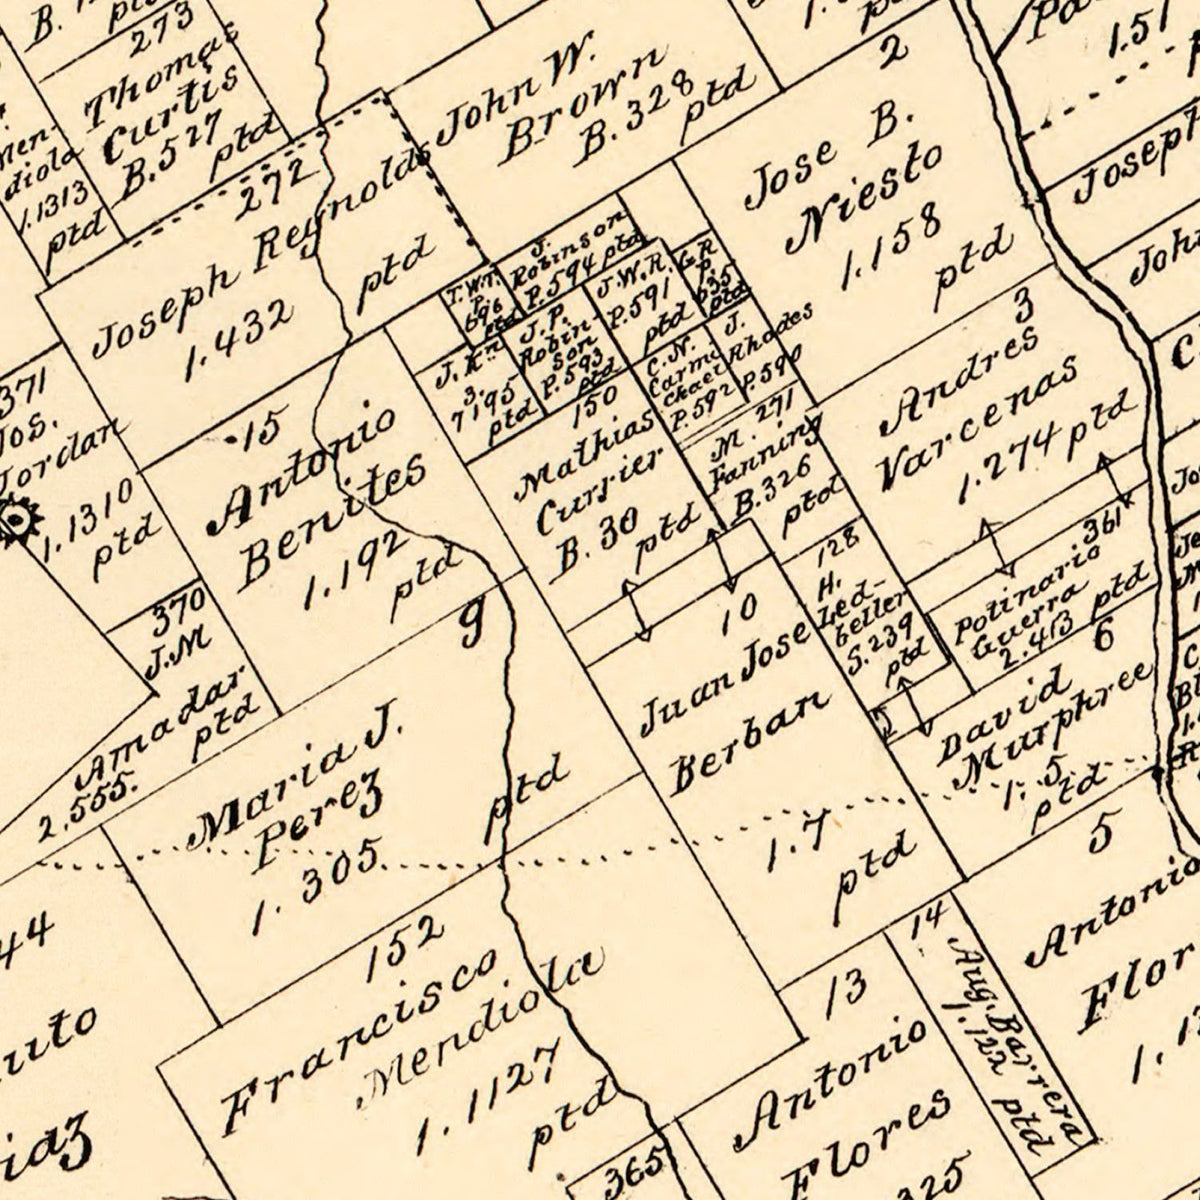 273
Thomas
Curtis
B. 527
ptd
diola
1.1313
ptd
John W.
Brown
B. 328
ptd
2
Jose B.
Niesto
1.158
ptd
1.51
Joseph
272
Joseph Reynolds
1.432
ptd
J.
Robinson
P. 594 ptd
J.W.R.
P. 591
ptd
T.W.T.
P.
696
ptd
G.R.
P.
635
ptd
J. P.
Robin
son
P. 593
ptd
C. N.
Carmi
chael
P. 592
J.
Rhodes
P. 590
3
7195
ptd
371
Jos.
Jordan
1.1310
ptd
15
Antonio
Benites
1.192
ptd
150
Mathias
Currier
B. 30
ptd
271
M.
Fanning
B. 326
ptd
3
Andres
Varcenas
1.274 ptd
370
J. M
Amadar
ptd
2.555.
128
H.
Led-
better
S. 239
ptd
361
Potinario
Guerra
2.413 ptd
10
Juan Jose
Berban
1.7
ptd
6
David
Murphree
1.5
ptd
9
Maria J.
Perez
1.305
ptd
5
Antonio
Flor
44
152
Francisco
Mendiola
1.1127
ptd
14
Aug. Barrera
1.122 ptd
13
Antonio
Flores
325
365